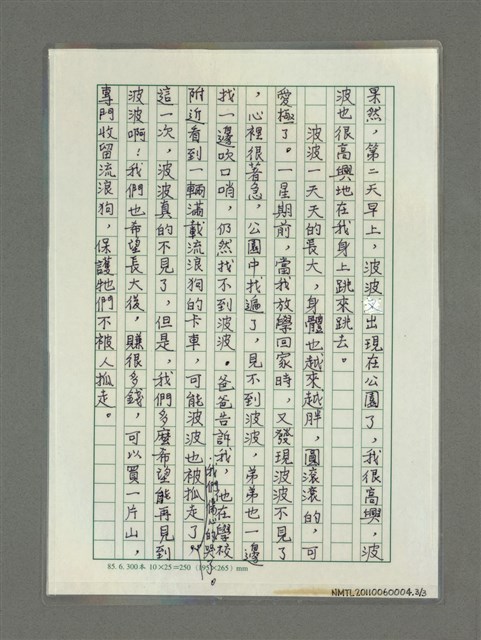 果然，第二天早上，波波又出現在公園了，我很高興，波
波也很高興地在我身上跳來跳去。
波波一天天的長大，身體也越來越胖，圓滾滾的，可
愛極了。一星期前，當我放學回家時，又發現波波不見了
，心裡很著急，公園中找遍了，見不到波波，弟弟也一邊
找一邊吹口哨，仍然找不到波波。爸爸告訴我，他在學校
附近看到一輛滿載流浪狗的卡車，可能波波也被抓走了，我們傷心的哭了。
這一次，波波真的不見了，但是，我們多麼希望能再見到
波波啊！我們也希望長大後，賺很多錢，可以買一片山，
專門收留流浪狗，保護牠們不被人抓走。
85. 6. 300本 10×25＝250 (195×265) mm
NMTL20110060004.3/3